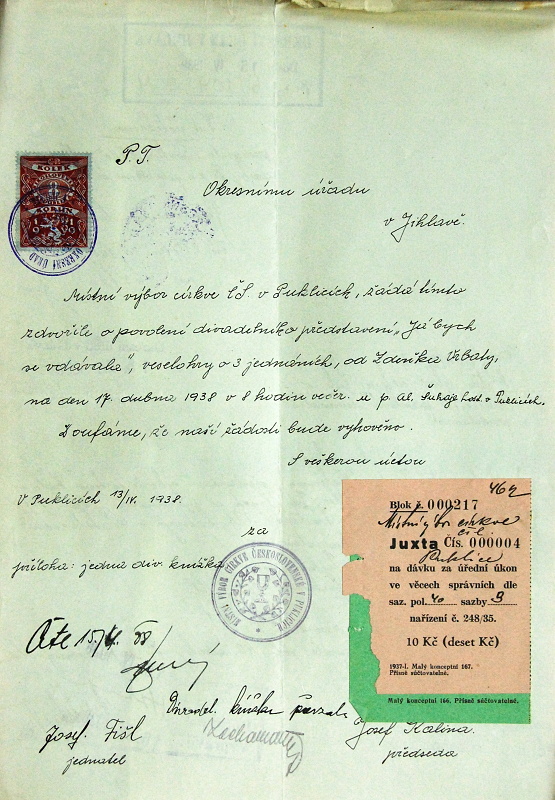 P.T.
KOLEK
Okresnímu úřadu
v Jihlavě.
OKRESNÍ ÚŘAD
Místní výbor církve čS. v Puklicích, žádá tímto
zdvořile o povolení divadelního představení „Já bych
se vdávala“, veselohry o 3 jednáních, od Zdeňka Vrbaty,
na den 17. dubna 1938 v 8 hodin večer. u p. Al. host. v Puklicích.
Doufáme, že naší žádosti bude vyhověno.
S veškerou úctou
V Puklicích 13/IV. 1938.
za
příloha: jedna div. knížka
MÍSTNÍ VÝBOR CÍRKVE ČESKOSLOVENSKÉ V PUKLICÍCH
Blok č. 000217
Místní výbor církve
čsl
Juxta Čís. 000004
Puklice
na dávku za úřední úkon
ve věcech správních dle
saz. pol. 40 sazby 9
nařízení č. 248/35.
10 Kč (deset Kč)
1937-I. Malý konceptní 167.
Přísně súčtovatelné.
Malý konceptní 166. Přísně súčtovatelné.
knížku
Josef Fišl
jednatel
Josef Kalina.
předseda